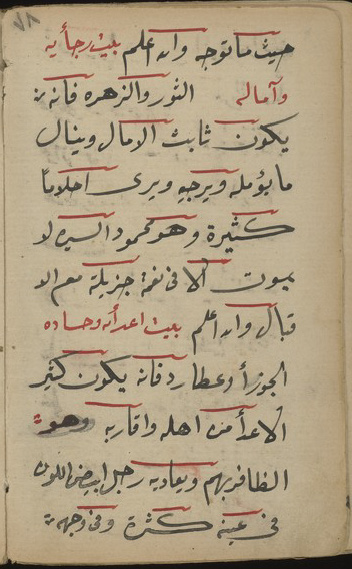 ٧٨
حيث ما توجه والله اعلم بيت رجأيه
وآماله الثور والزهره فانه
يكون ثابت الامال وينال
ما يؤمله ويرجيه ويرى احلاما
كثيرة وهو محمود السيره لا
يموت الا فى نعمة جزيلة مع الا
قبال والله اعلم بيت اعدأئه وحساده
الجوزأ وعطارد فانه يكون كثير
الاعدأ من اهله واقاربه وهو
الظافر بهم ويعاديه رجل ابيض اللون
فى عينه كثرة وفى وجهه